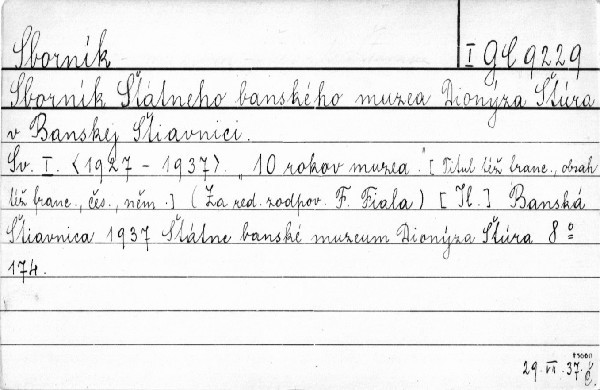 Sborník
I GC 9229
Sborník Štátneho banského muzea Dionýza Štúra
v Banskej Štiavnici.
Sv. I. <1927 - 1937>. „10 rokov muzea." [Titul též franc., obsah
též franc., čes., něm.] (Za red. zodpov. F. Fiala) [Il.] Banská
Štiavnica 1937 Štátne banské muzeum Dionýza Štúra 8°
174.
29. VII. 37.